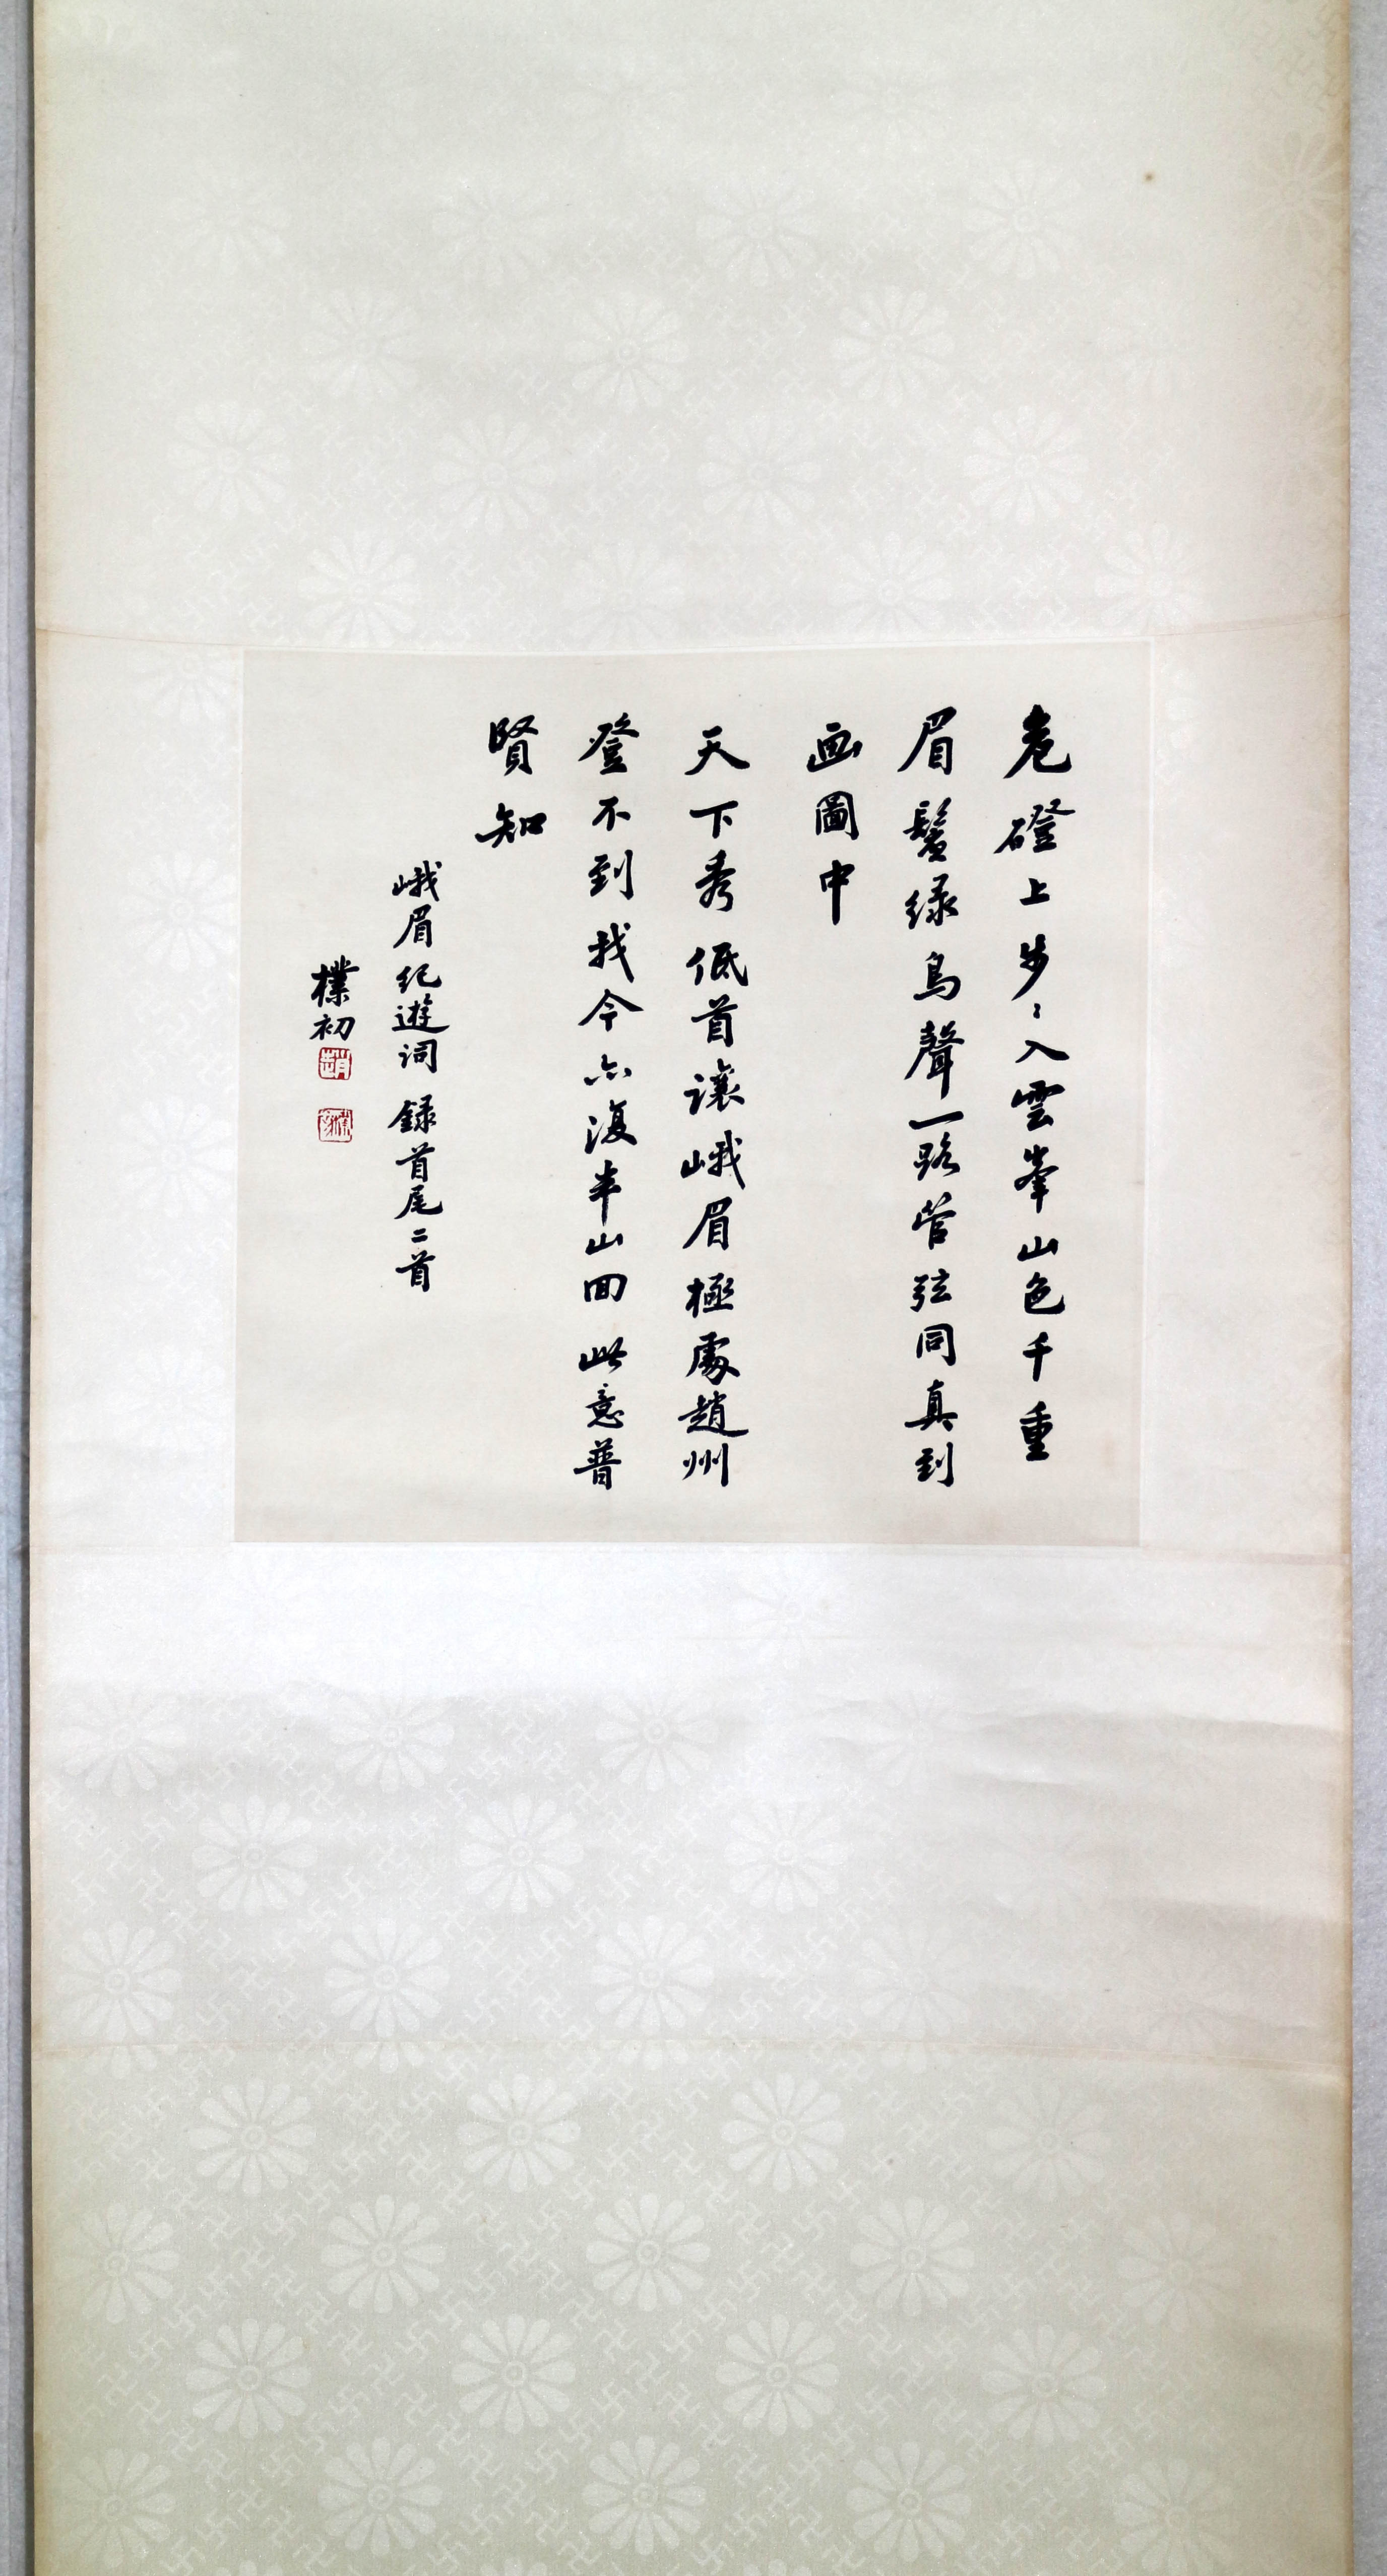 危磴上步〻入雲峯山色千重
眉鬟緑鳥聲一路管弦同真到
画圖中
天下秀低首讓峨眉極處趙州
登不到我今亦復半山回此意普
賢知
峨眉紀遊詞 録首尾二首
樸初
趙
樸初